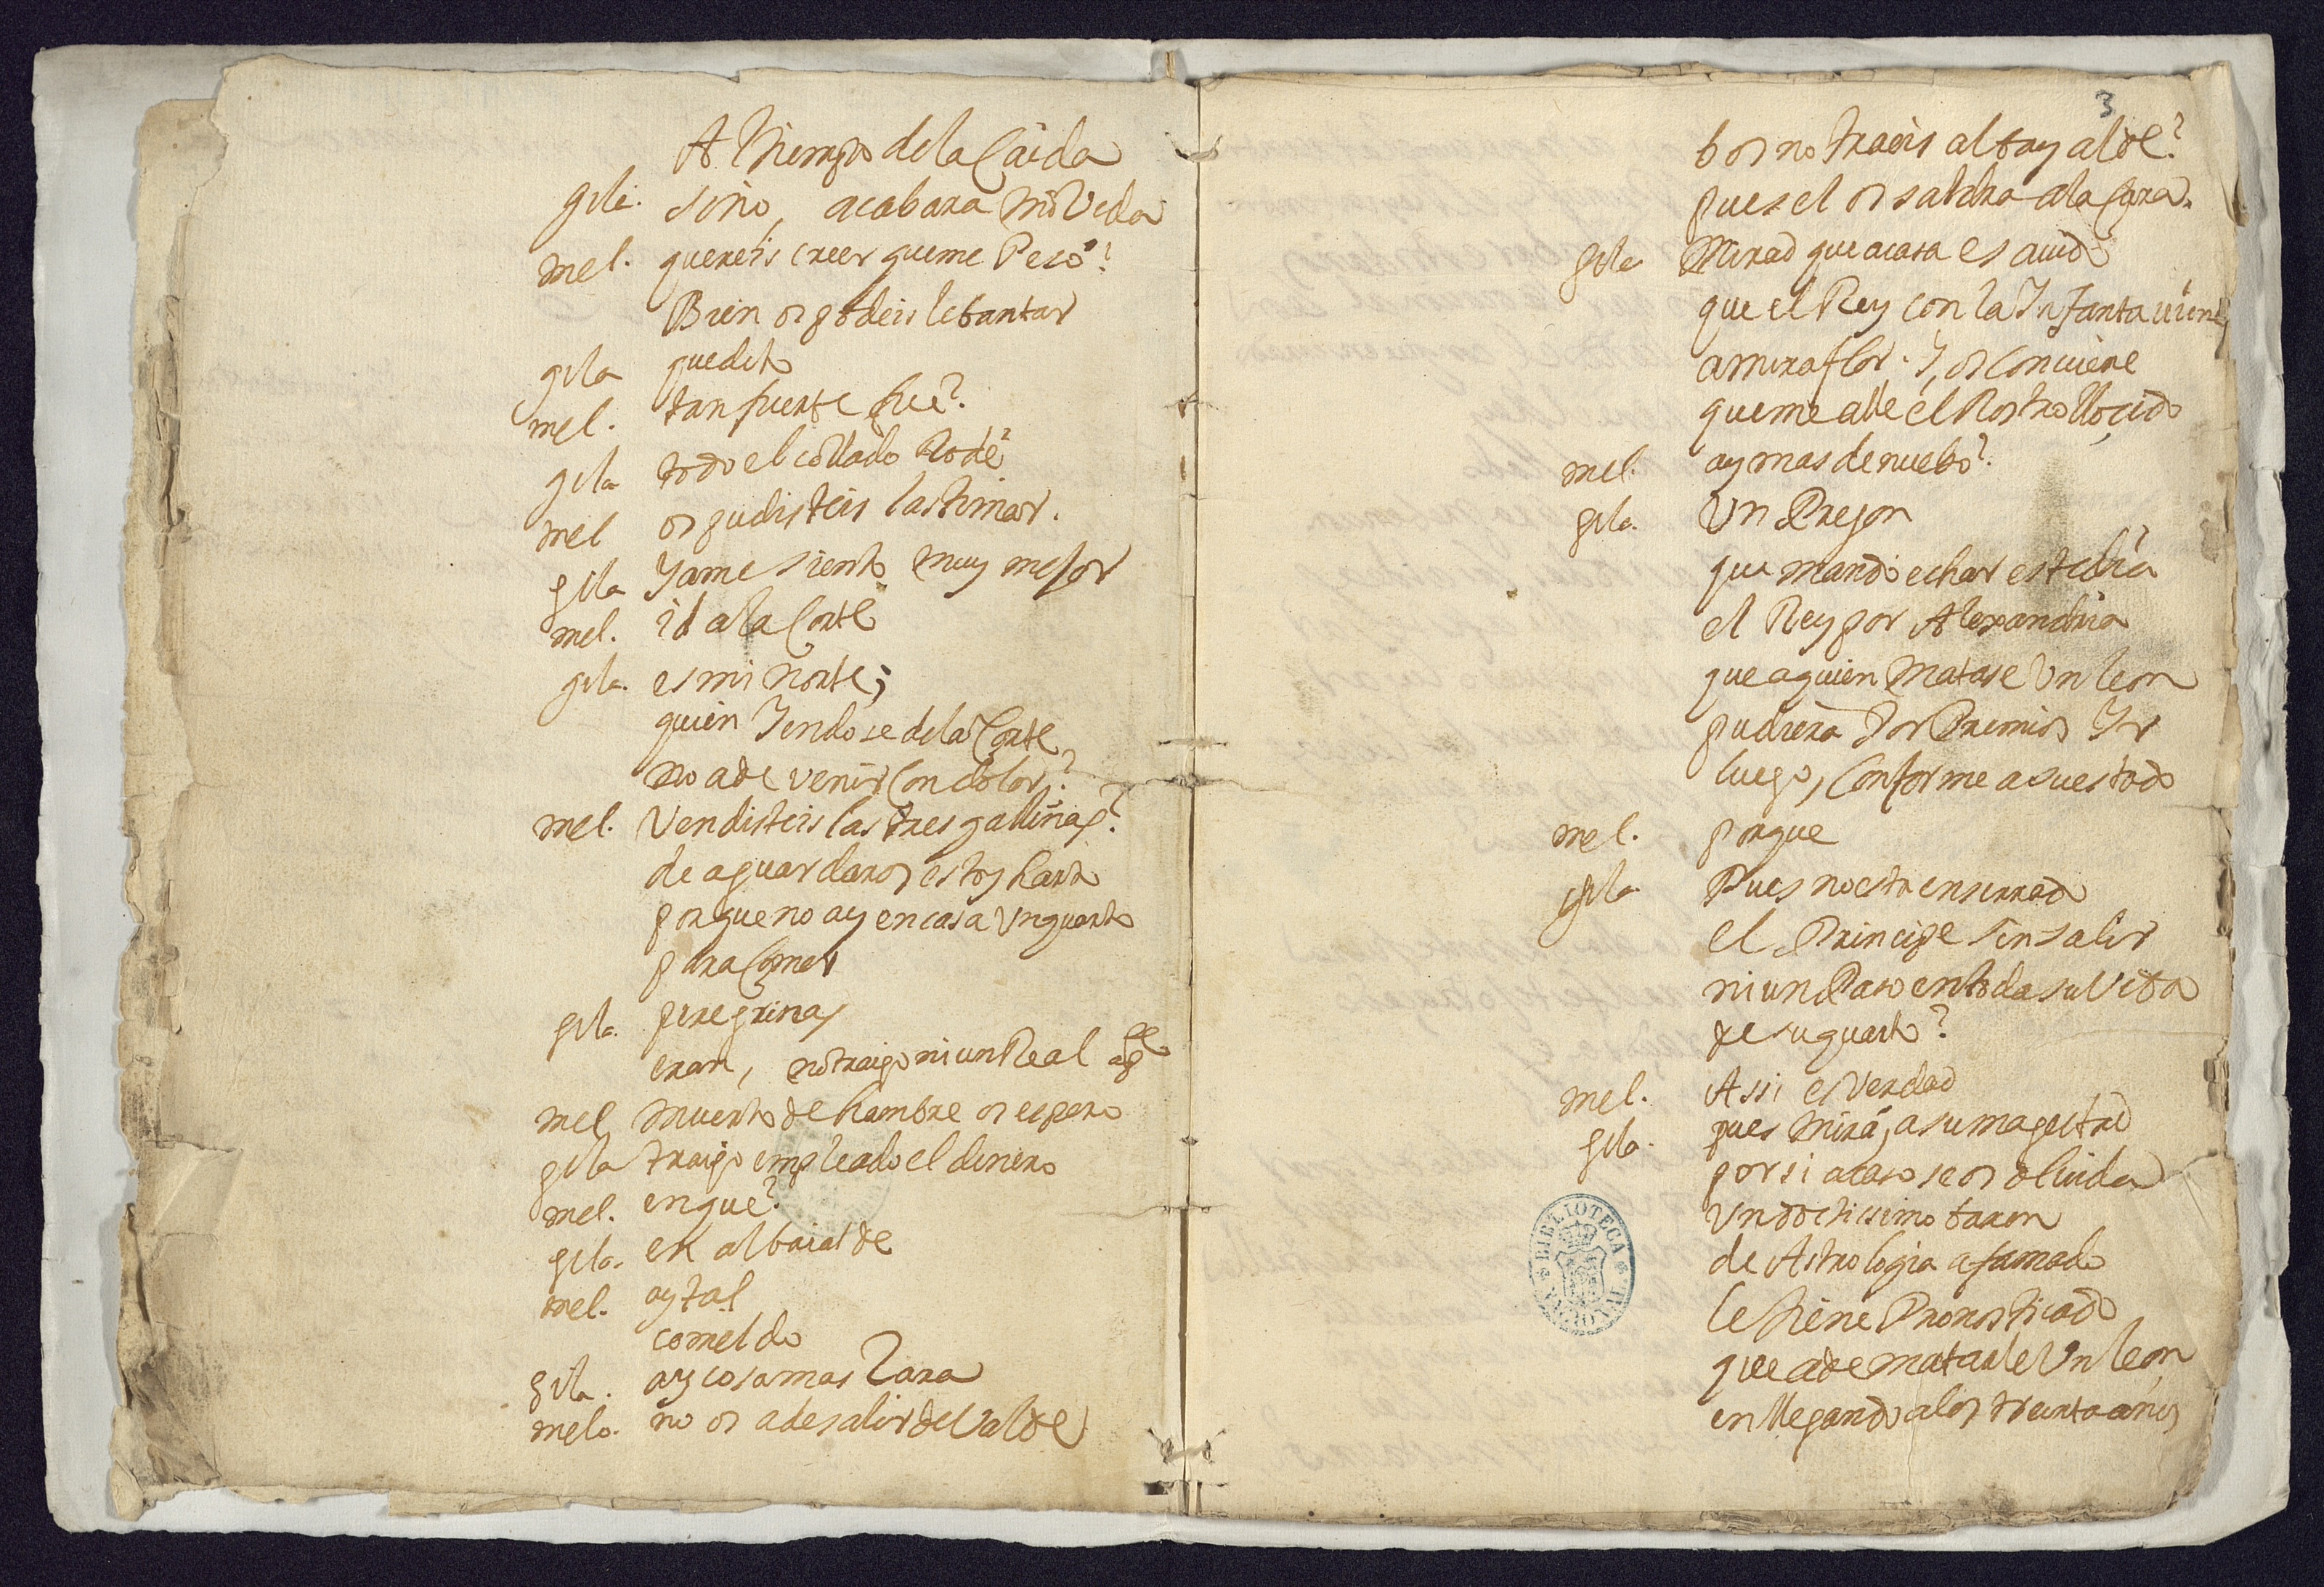 A tiempo de la Caida
gila. sino, acabara mi Vida
mel. quereis creer que me Peso?
Bien os podeis lebantar
gila quedito
mel. tan fuerte fue?
gila todo el collado Rodé
mel os pudisteis lastimar.
gila Ya me siento muy mejor
mel. id a la Corte
gila. es mi norte;
quien Yendose de la Corte
no a de venir con dolor?
mel. Vendisteis las tres gallinas?
de aguardaros estoy harto
porque no ay en casa un quarto
para Comer
gila. peregrinas
eran, no traigo ni un Real
mel muerto de hambre os espero
gila traigo empleado el dinero
mel. en que?
gila. en albaialde
mel. ay tal
comeldo
gila. ay cosa mas Rara
melo. no os a de salir de Valde
3
bos no traeis albayalde?
pues el os saldra a la Cara.
gila Mirad que acasa es auido
que el Rey con la Infanta viene
a miraflor. Y, os conuiene
que me alle el Rostro lloçido
mel. ay mas de nuebo?
gila. Un Pregon
que mando echar este dia
el Rey por Alexandria
que a quien Matase Un leon
pudiera Por Premio Yr
luego, Conforme a su estado
mel. porque
gila Pues no esta enserrado
el Principe sin salir
ni un Paso en toda su Vida
de su quarto?
mel. Assi es Verdad
gila. pues mira, a su magestad
por si acaso se os oluida
Un doctissimo baron
de Astrologia afamado
le tiene Pronosticado
que a de matarle Un leon
en llegando a los treinta años
BIBLIOTECA NACIONAL